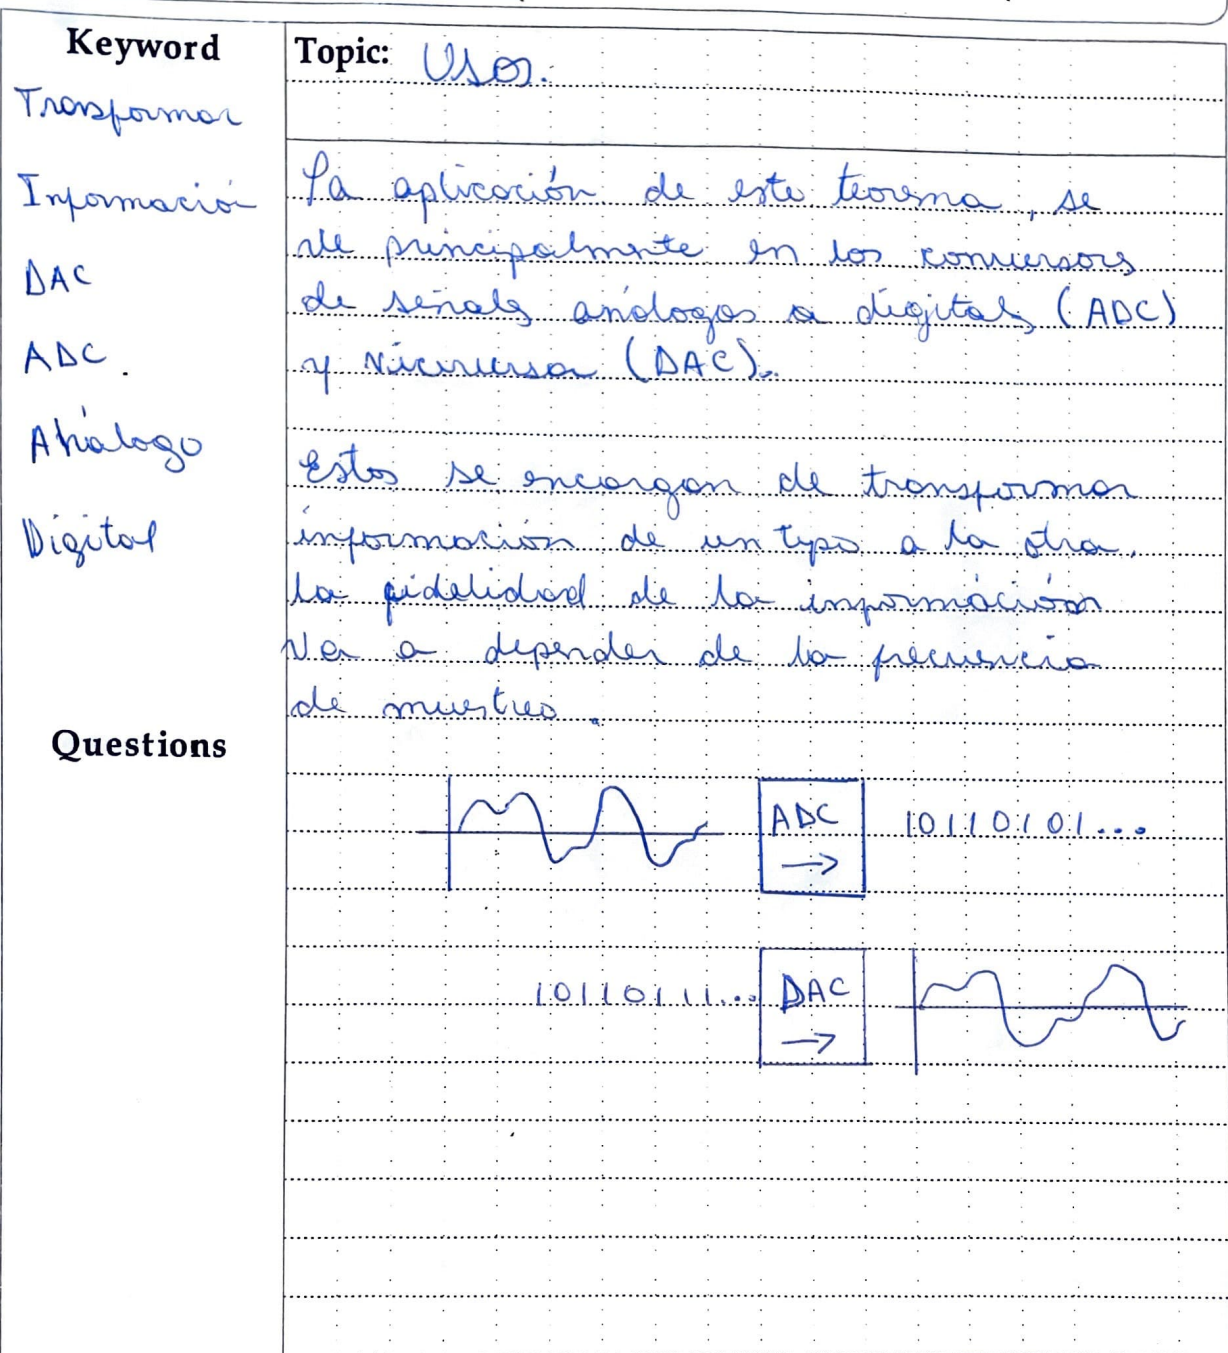 Keyword
Trasformar
Información
DAC
ADC.
Análogo
Digital
Questions
Topic: Usos.
La aplicación de este teorema, se
ve principalmente en los conversores
de señales análogas a digitales (ADC)
y viceversa (DAC).
Estos se encargan de transformar
información de un tipo a la otra.
la fidelidad de la información
va a depender de la frecuencia
de muestreo.
ADC 10110101...
10110111... DAC